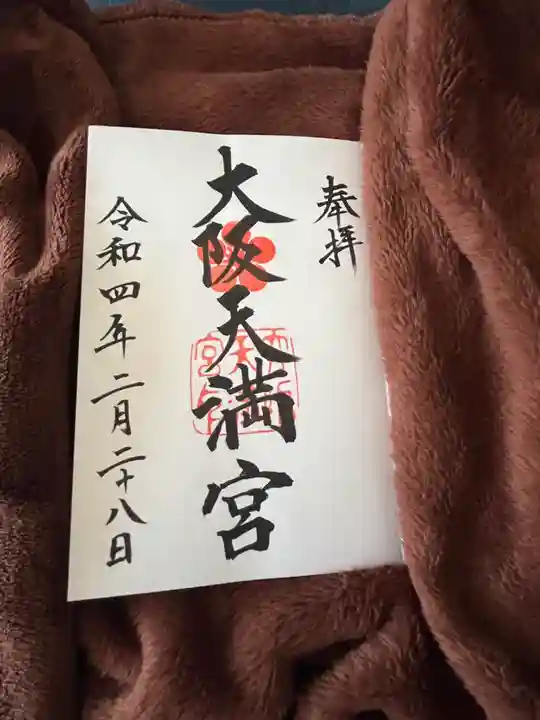 奉拝
大阪天満宮
令和四年二月二十八日